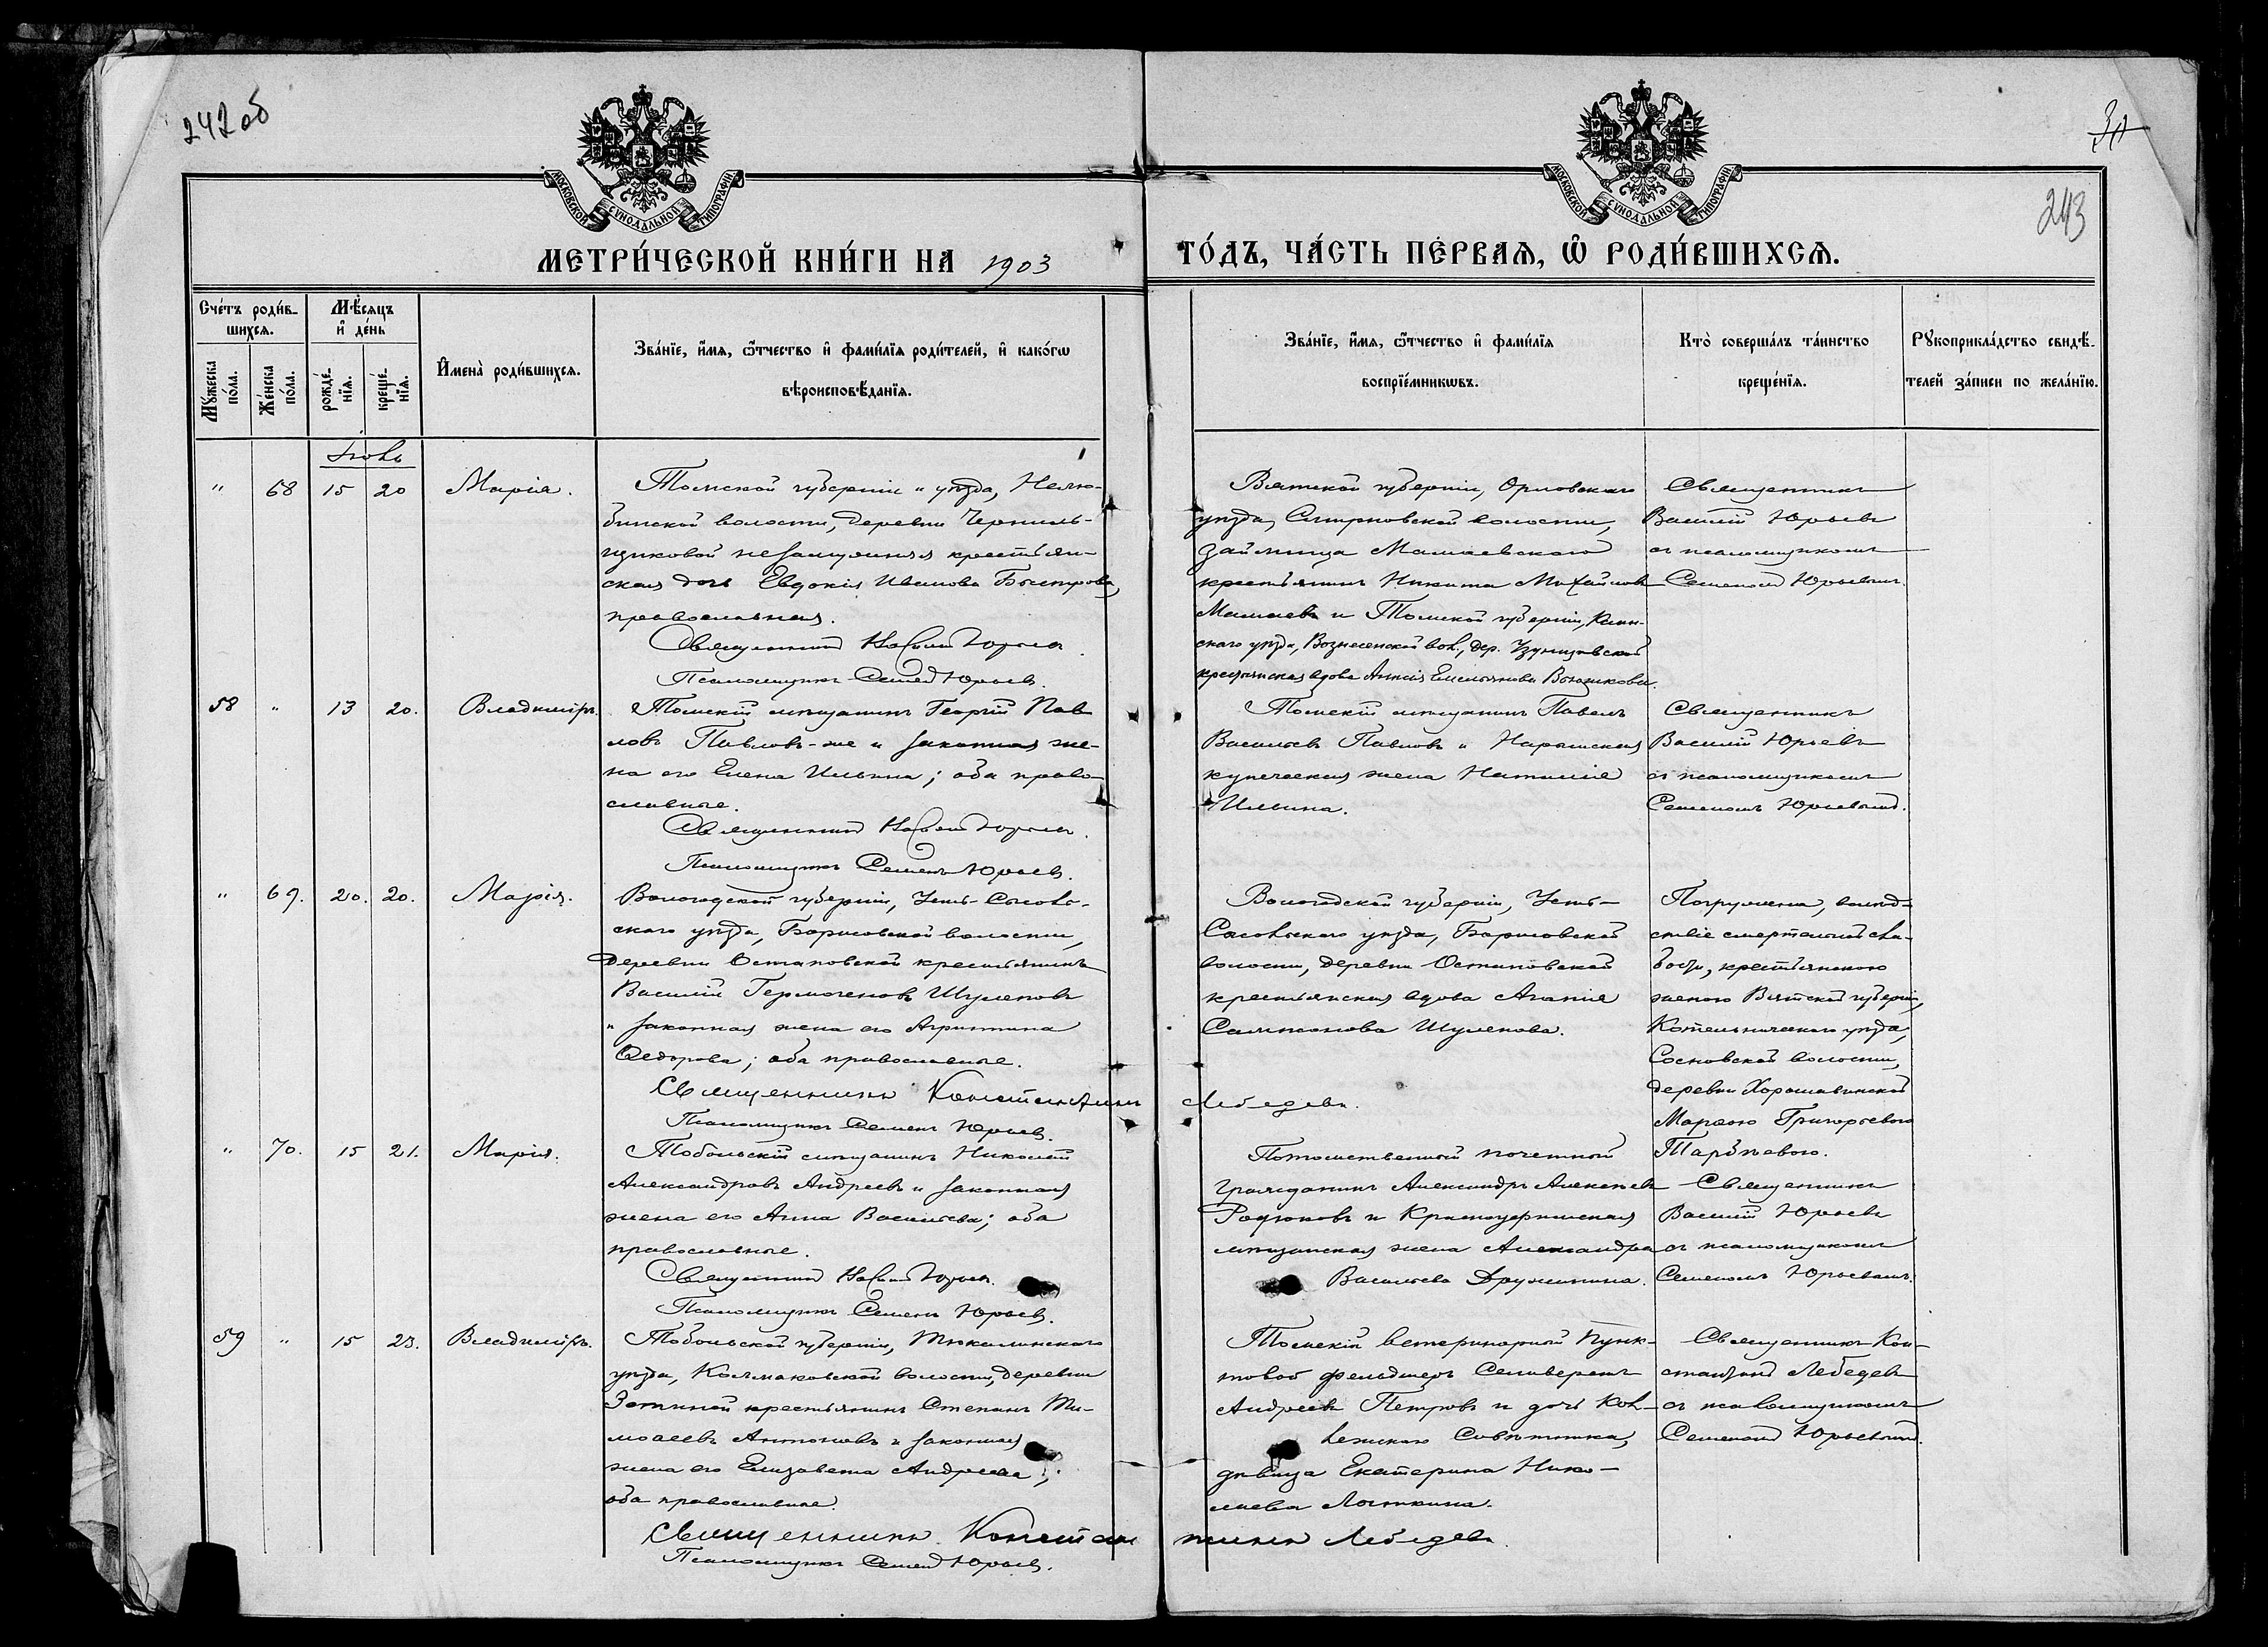 242 об
243
МОСКОВСКОЙ СУНОДАЛЬНОЙ ТИПОГРАФІИ
МОСКОВСКОЙ СУНОДАЛЬНОЙ ТИПОГРАФІИ
МЕТРИ́ЧЕСКОЙ КНИ́ГИ НА 1903
ГО́ДЪ, ЧА́СТЬ ПЕ́РВАѦ, Ѽ РОДИ́ВШИХСѦ.
Сче́тъ роди́в-
шихсѧ.
Мꙋ́жеска
по́ла.
Же́нска
по́ла.
Мѣ́сѧцъ
и҆ де́нь
рожде́-
нїѧ.
креще́-
нїѧ.
И҆мена̀ роди́вшихсѧ.
Зва́нїе, и҆́мѧ, ѻ҆́тчество и҆ фами́лїѧ роди́телей, и҆ како́гѡ
вѣроисповѣ́данїѧ.
Зва́нїе, и҆́мѧ, ѻ҆́тчество и҆ фами́лїѧ
воспрїе́мникѡвъ.
Кто̀ соверша́лъ та́инство
креще́нїѧ.
Рꙋкоприкла́дство свидѣ́-
телей за́писи по жела́нїю.
Іюнь
" 68 15 20 Марія.
Томской губерніи и уѣзда, Нелю-
бинской волости, деревни Черниль-
щиковой незамужняя крестьян-
ская дочь Евдокія Иванова Быстрова,
православная.
Священникъ Василій Юрьевъ.
Псаломщикъ Семенъ Юрьевъ.
Вятской губерніи, Орловскаго
уѣзда, волости,
займища Мамаевскаго
крестьянинъ Никита Михайловъ
Мамаевъ и Томской губерніи, Каин-
скаго уѣзда, Вознесенской вол., дер.
крестьянская вдова Емельянова
Священникъ
Василій Юрьевъ
съ псаломщикомъ
Семеномъ Юрьевымъ.
58 " 13 20. Владиміръ.
Томскій мѣщанинъ Георгій Пав
ловъ Павловъ-же и законная же-
на его Елена Ильина; оба право-
славные.
Священникъ Василій Юрьевъ.
Псаломщикъ Семенъ Юрьевъ.
Томскій мѣщанинъ Павелъ
Васильевъ Павловъ и Нарымская
купеческая жена Наталія
Ильина.
Священникъ
Василій Юрьевъ
съ псаломщикомъ
Семеномъ Юрьевымъ.
" 69. 20. 20. Марія.
Вологодской губерніи, Усть-Сысоль-
скаго уѣзда, Борисовской волости,
деревни Остаповской крестьянинъ
Василій Гермогеновъ Шулеповъ
и законная жена его Агриппина
Ѳедорова; оба православные.
Священникъ Константинъ
Лебедевъ.
Псаломщикъ Семенъ Юрьевъ.
Вологодской губерніи, Усть-
Сысольскаго уѣзда, Борисовской
волости, деревни Остаповской
крестьянская вдова Агапія
Сампсонова Шулепова.
Погружена, вслѣд-
ствіе смертельной сла-
бости, крестьянскою
женою Вятской губерніи,
Котельническаго уѣзда,
Сосновской волости,
деревни Хорошавинской
Марѳою Григорьевою
" 70. 15 21. Марія.
Тобольскій мѣщанинъ Николай
Александровъ Андреевъ и законная
жена его Анна Васильева; оба
православные.
Священникъ Василій Юрьевъ.
Псаломщикъ Семенъ Юрьевъ.
Потомственный почетный
гражданинъ Александръ Алексѣевъ
Родюковъ и Красноуфимская
мѣщанская жена Александра
Васильева Дружинина.
Священникъ
Василій Юрьевъ
съ псаломщикомъ
Семеномъ Юрьевымъ.
59 " 15 23. Владиміръ.
Тобольской губерніи, Тюкалинскаго
уѣзда, Колмаковской волости, деревни
Зотиной крестьянинъ Степанъ Ти-
моѳеевъ Антоновъ и законная
жена его Елизавета Андреева;
оба православные.
Священникъ Констан
тинъ Лебедевъ.
Псаломщикъ Семенъ Юрьевъ.
Томскій ветеринарный пунк-
товой фельдшеръ Селиверстъ
Андреевъ Петровъ и дочь Кол-
лежскаго Совѣтника,
дѣвица Екатерина Нико-
лаева Лаптина.
Священникъ Кон-
стантинъ Лебедевъ
съ псаломщикомъ
Семеномъ Юрьевымъ.